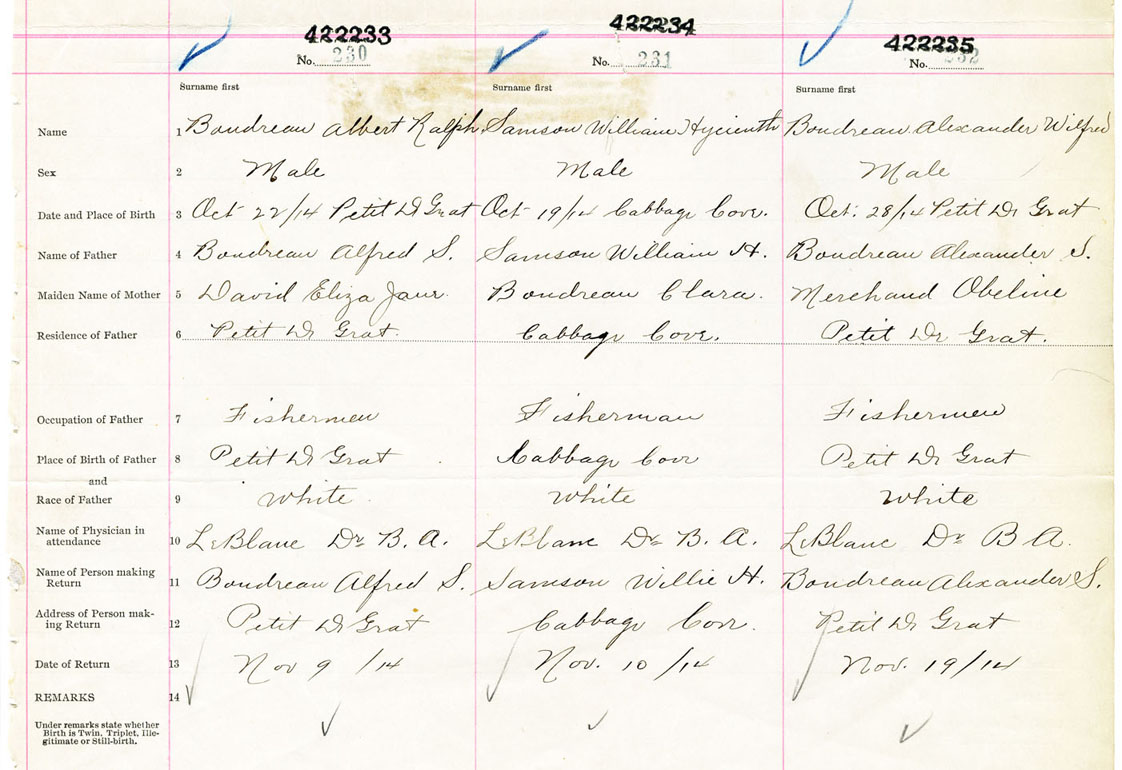 422233 422234 422235
No. 230 No. 231 No. 232
Surname first Surname first Surname first
Name 1 Boudreau Albert Ralph. Samson William Hycienth Boudreau Alexander Wilfred
Sex 2 Male Male Male
Date and Place of Birth 3 Oct 22/14 Petit De Grat Oct 19/14 Cabbage Cove. Oct. 28/14 Petit De Grat
Name of Father 4 Boudreau Alfred S. Samson William H. Boudreau Alexander S.
Maiden Name of Mother 5 David Eliza Jane. Boudreau Clara. Merchand Obeline
Residence of Father 6 Petit De Grat. Cabbage Cove. Petit De Grat.
Occupation of Father 7 Fishermen Fisherman Fishermen
Place of Birth of Father 8 Petit De Grat Cabbage Cove Petit De Grat
and
Race of Father 9 White White White
Name of Physician in
attendance 10 LeBlanc Dr B. A. LeBlanc Dr B. A. LeBlanc Dr B A.
Name of Person making
Return 11 Boudreau Alfred S. Samson Willie H. Boudreau Alexander S.
Address of Person mak-
ing Return 12 Petit De Grat Cabbage Cove. Petit De Grat
Date of Return 13 Nov 9 /14 Nov. 10 /14 Nov. 19/14
REMARKS 14
Under remarks state whether
Birth is Twin, Triplet, Ille-
gitimate or Still-birth.